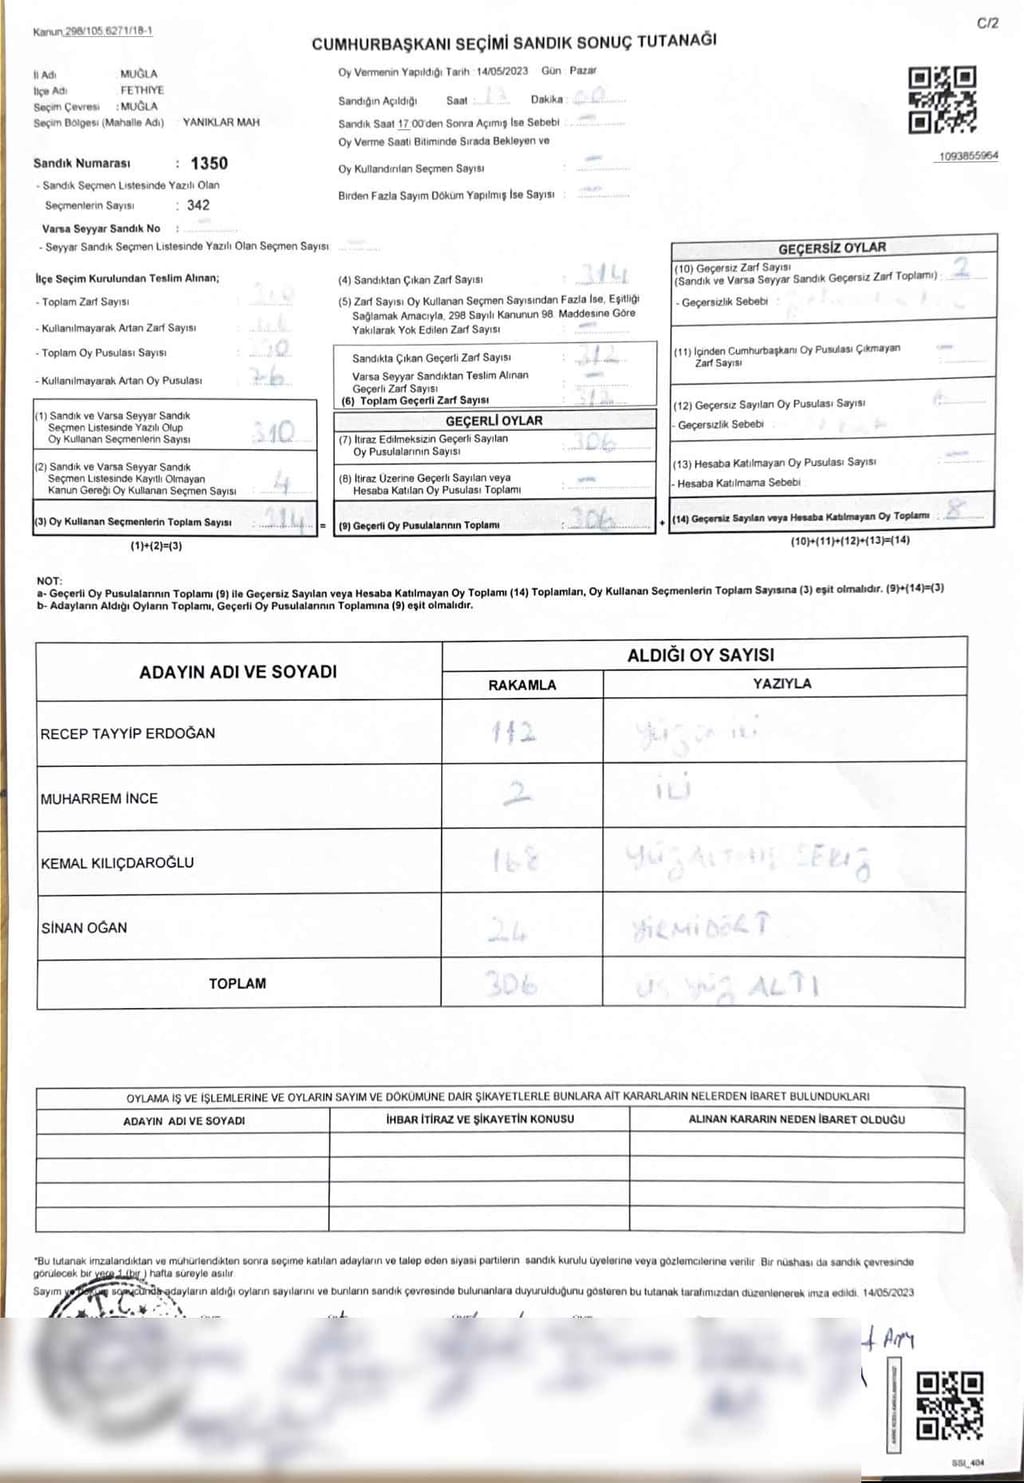 Kanun 298/105 6271/18-1
C/2
CUMHURBAŞKANI SEÇİMİ SANDIK SONUÇ TUTANAĞI
İl Adı : MUĞLA
İlçe Adı : FETHİYE
Seçim Çevresi : MUĞLA
Seçim Bölgesi (Mahalle Adı) YANIKLAR MAH
Sandık Numarası : 1350
- Sandık Seçmen Listesinde Yazılı Olan
Seçmenlerin Sayısı : 342
Varsa Seyyar Sandık No :
- Seyyar Sandık Seçmen Listesinde Yazılı Olan Seçmen Sayısı
Oy Vermenin Yapıldığı Tarih : 14/05/2023 Gün Pazar
Sandığın Açıldığı Saat : Dakika :
Sandık Saat 17 00'den Sonra Açımış İse Sebebi :
Oy Verme Saati Bitiminde Sırada Bekleyen ve
Oy Kullandırılan Seçmen Sayısı :
Birden Fazla Sayım Döküm Yapılmış İse Sayısı :
1093855964
İlçe Seçim Kurulundan Teslim Alınan;
- Toplam Zarf Sayısı :
- Kullanılmayarak Artan Zarf Sayısı :
- Toplam Oy Pusulası Sayısı :
- Kullanılmayarak Artan Oy Pusulası :
(1) Sandık ve Varsa Seyyar Sandık
Seçmen Listesinde Yazılı Olup
Oy Kullanan Seçmenlerin Sayısı : 310
(2) Sandık ve Varsa Seyyar Sandık
Seçmen Listesinde Kayıtlı Olmayan
Kanun Gereği Oy Kullanan Seçmen Sayısı : 4
(3) Oy Kullanan Seçmenlerin Toplam Sayısı : 314 =
(1)+(2)=(3)
(4) Sandıktan Çıkan Zarf Sayısı : 314
(5) Zarf Sayısı Oy Kullanan Seçmen Sayısından Fazla İse, Eşitliği
Sağlamak Amacıyla, 298 Sayılı Kanunun 98 Maddesine Göre
Yakılarak Yok Edilen Zarf Sayısı :
Sandıkta Çıkan Geçerli Zarf Sayısı : 312
Varsa Seyyar Sandıktan Teslim Alınan
Geçerli Zarf Sayısı :
(6) Toplam Geçerli Zarf Sayısı : 312
GEÇERLİ OYLAR
(7) İtiraz Edilmeksizin Geçerli Sayılan
Oy Pusulalarının Sayısı : 306
(8) İtiraz Üzerine Geçerli Sayılan veya
Hesaba Katılan Oy Pusulası Toplamı :
(9) Geçerli Oy Pusulalarının Toplamı : 306 +
GEÇERSİZ OYLAR
(10) Geçersiz Zarf Sayısı
(Sandık ve Varsa Seyyar Sandık Geçersiz Zarf Toplamı) : 2
- Geçersizlik Sebebi :
(11) İçinden Cumhurbaşkanı Oy Pusulası Çıkmayan
Zarf Sayısı :
(12) Geçersiz Sayılan Oy Pusulası Sayısı :
- Geçersizlik Sebebi :
(13) Hesaba Katılmayan Oy Pusulası Sayısı :
- Hesaba Katılmama Sebebi
(14) Geçersiz Sayılan veya Hesaba Katılmayan Oy Toplamı : 8
(10)+(11)+(12)+(13)=(14)
NOT:
a- Geçerli Oy Pusulalarının Toplamı (9) ile Geçersiz Sayılan veya Hesaba Katılmayan Oy Toplamı (14) Toplamları, Oy Kullanan Seçmenlerin Toplam Sayısına (3) eşit olmalıdır. (9)+(14)=(3)
b- Adayların Aldığı Oyların Toplamı, Geçerli Oy Pusulalarının Toplamına (9) eşit olmalıdır.
ADAYIN ADI VE SOYADI
ALDIĞI OY SAYISI
RAKAMLA YAZIYLA
RECEP TAYYİP ERDOĞAN 112
MUHARREM İNCE 2 İKİ
KEMAL KILIÇDAROĞLU 168 YÜZALTMIŞ SEKİZ
SİNAN OĞAN 24 YİRMİDÖRT
TOPLAM 306 üç yüz ALTI
OYLAMA İŞ VE İŞLEMLERİNE VE OYLARIN SAYIM VE DÖKÜMÜNE DAİR ŞİKAYETLERLE BUNLARA AİT KARARLARIN NELERDEN İBARET BULUNDUKLARI
ADAYIN ADI VE SOYADI İHBAR İTİRAZ VE ŞİKAYETİN KONUSU ALINAN KARARIN NEDEN İBARET OLDUĞU
*Bu tutanak imzalandıktan ve mühürlendikten sonra seçime katılan adayların ve talep eden siyasi partilerin sandık kurulu üyelerine veya gözlemcilerine verilir Bir nüshası da sandık çevresinde
görülecek bir yere 1 (bir ) hafta süreyle asılır
Sayım ve döküm sonucunda adayların aldığı oyların sayılarını ve bunların sandık çevresinde bulunanlara duyurulduğunu gösteren bu tutanak tarafımızdan düzenlenerek imza edildi. 14/05/2023
T.C.
SSI_404